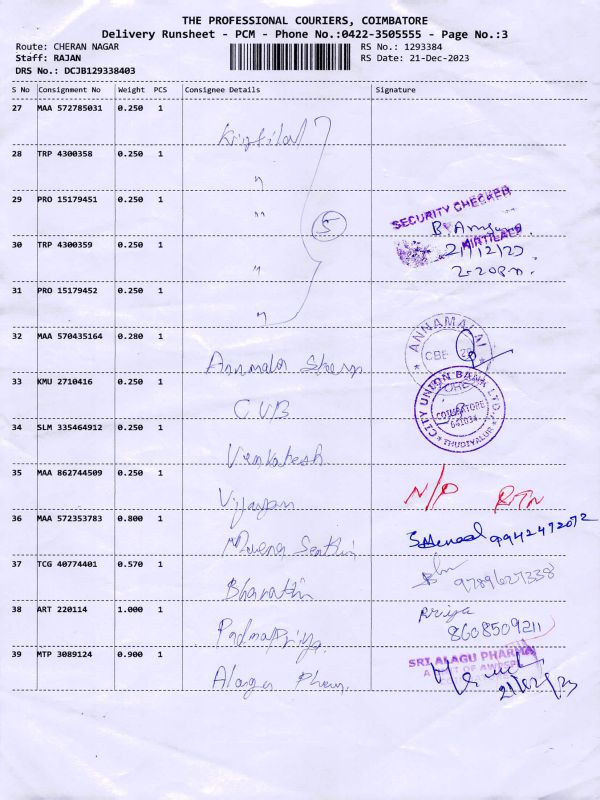 THE PROFESSIONAL COURIERS, COIMBATORE
Delivery Runsheet - PCM - Phone No.:0422-3505555 - Page No.:3
Route: CHERAN NAGAR RS No.: 1293384
Staff: RAJAN RS Date: 21-Dec-2023
DRS No.: DCJB129338403
S No Consignment No Weight PCS Consignee Details Signature
27 MAA 572785031 0.250 1 Kirtilal
28 TRP 4300358 0.250 1 "
29 PRO 15179451 0.250 1 " 5 SECURITY CHECKER
KIRTILALS
30 TRP 4300359 0.250 1 " 21/12/23
2.20pm.
31 PRO 15179452 0.250 1 "
32 MAA 570435164 0.280 1 ANNAMALAI
CBE
33 KMU 2710416 0.250 1 C.U.B CITY UNION BANK LTD.
COIMBATORE
641034
THUDIYALUR
34 SLM 335464912 0.250 1 Venkatesh
35 MAA 862744509 0.250 1 Vijayan N/P RTN
36 MAA 572353783 0.800 1 9942472072
37 TCG 40774401 0.570 1 Bharathi 9789627338
38 ART 220114 1.000 1 PadmaPriya. Priya
8608509211
39 MTP 3089124 0.900 1 SRI ALAGU PHARMA